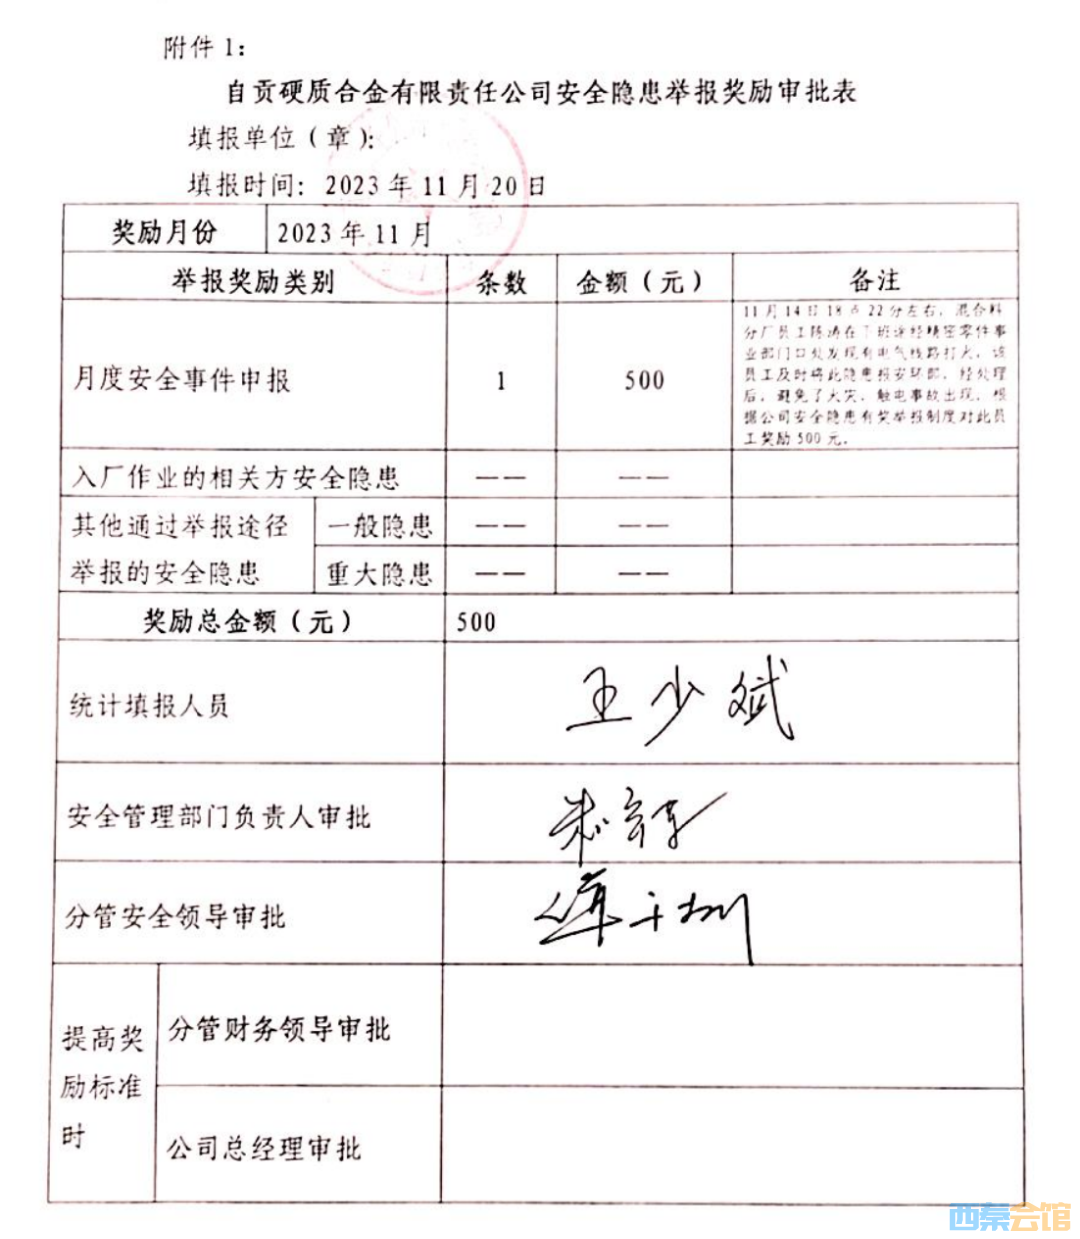 附件 1：
自贡硬质合金有限责任公司安全隐患举报奖励审批表
填报单位（章）：
填报时间： 2023 年 11 月 20 日
奖励月份 2023 年 11 月
举报奖励类别 条数 金额（元） 备注
月度安全事件申报 1 500
11 月 14 日 18 点 22 分左右，混合料
分厂员工陈涛在下班途经精密零件事
业部门口处发现有电气线路打火，该
员工及时将此隐患报安环部，经处理
后，避免了火灾、触电事故出现，根
据公司安全隐患有奖举报制度对此员
工奖励 500 元。
入厂作业的相关方安全隐患 —— ——
其他通过举报途径
举报的安全隐患
一般隐患 —— ——
重大隐患 —— ——
奖励总金额（元） 500
统计填报人员 王少斌
安全管理部门负责人审批
分管安全领导审批
提高奖
励标准
时
分管财务领导审批
公司总经理审批
西秦会馆